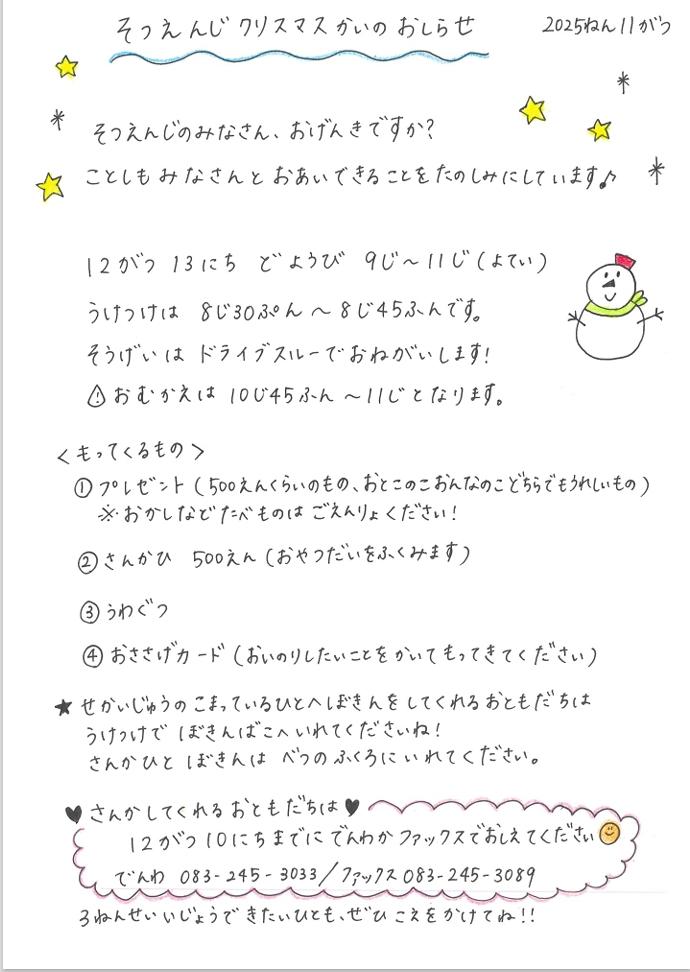 そつえんじ クリスマスかいの おしらせ
2025ねん11がつ
そつえんじのみなさん、おげんきですか?
ことしも みなさんと おあいできることをたのしみにしています♪
12がつ 13にち どようび 9じ～11じ(よてい)
うけつけは 8じ30ぷん～8じ45ふんです。
そうげいは ドライブスルーでおねがいします!
おむかえは 10じ45ふん ～11じとなります。
<もってくるもの>
①プレゼント(500えんくらいのもの、おとこのこおんなのこどちらでもうれしいもの)
※おかしなどたべものは ごえんりょください!
②さんかひ 500えん(おやつだいをふくみます)
③うわぐつ
④おささげカード(おいのりしたいことをかいてもってきてください)
★せかいじゅうのこまっているひとへぼきんをしてくれるおともだちは
うけつけで ぼきんばこへいれてくださいね!
さんかひと ぼきんは べつのふくろにいれてください。
♥さんかしてくれるおともだちは♥
12がつ10にちまでに でんわかファックスでおしえてください
でんわ 083-245-3033/ファックス083-245-3089
3ねんせいいじょうで きたいひとも、ぜひ こえをかけてね!!